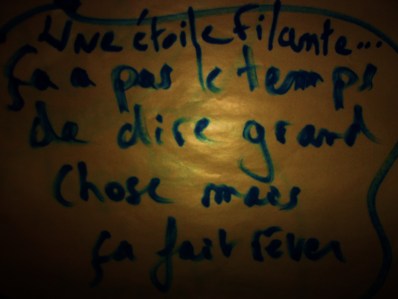 Une étoile filante...
ça a pas le temps
de dire grand
chose mais
ça fait rêver